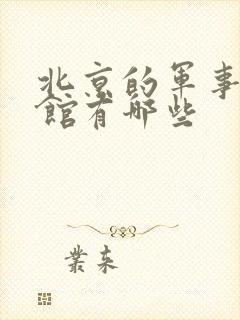 北京的军事
館有哪些
業来